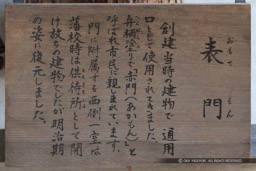 表門
おもて もん
創建当時の建物で通用
口として使用されてきました。
弁柄塗りで「赤門(あかもん)」と
呼ばれ市民に親しまれています。
門に附属する西側の室は
藩校時は供待所として開
け放ちの建物でしたが明治期
の姿に復元しました。